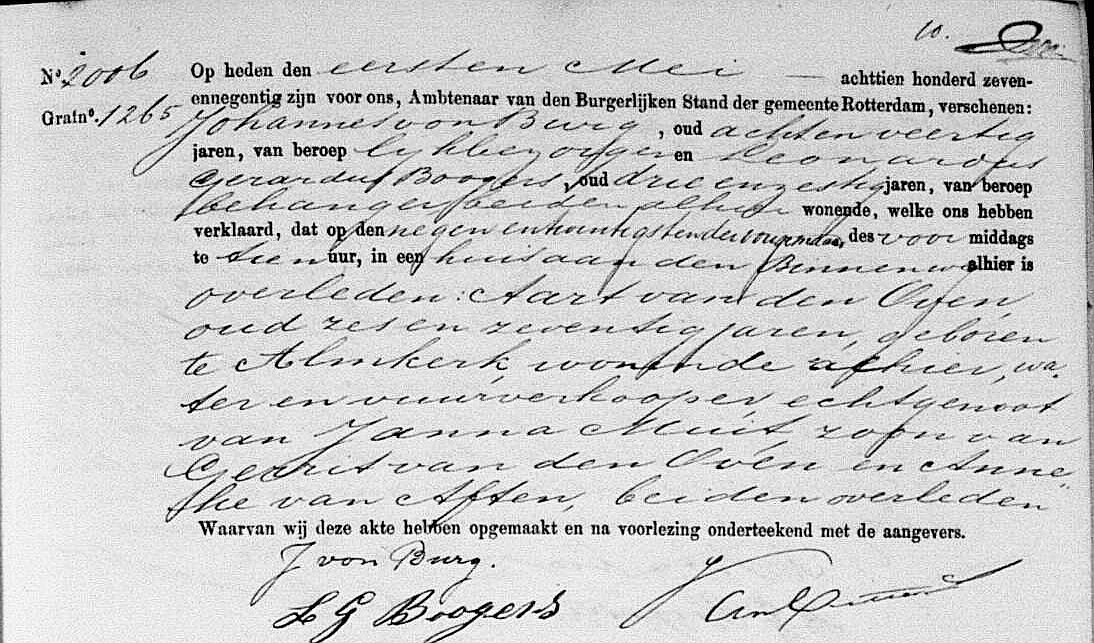 10.
No. 2006 Op heden den eersten Mei — achttien honderd zeven-
ennegentig zijn voor ons, Ambtenaar van den Burgerlijken Stand der gemeente Rotterdam, verschenen:
Gratno. 1265 Johannes von Burg, oud acht en veertig
jaren, van beroep lijkbezorger en Leonardus
Gerardus Boogers, oud drie en zestig jaren, van beroep
behanger beiden alhier wonende, welke ons hebben
verklaard, dat op den negen en twintigsten der vorige maand, des voor middags
te tien uur, in een huis aan den Binnenweg alhier is
overleden: Aart van den Oven,
oud zes en zeventig jaren, geboren
te Almkerk, wonende alhier, wa-
ter en vuurverkooper, echtgenoot
van Janna Muit, zoon van
Gerrit van den Oven en Anne-
ke van Aften, beiden overleden
Waarvan wij deze akte hebben opgemaakt en na voorlezing onderteekend met de aangevers.
J von Burg.
L G Boogers